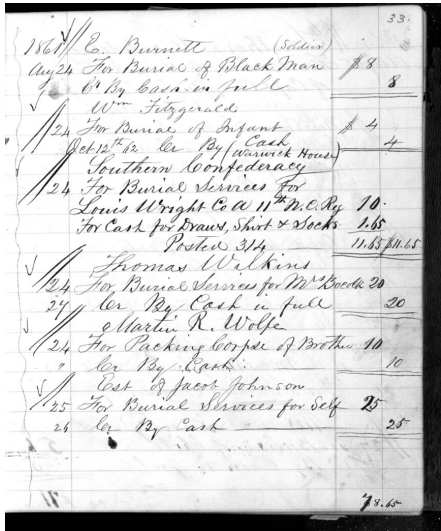 33.
1861 E. Burnett (Soldier)
Aug 24 For Burial of Black Man $ 8
Cr By Cash in full 8
Wm Fitzgerald
24 For Burial of Infant $ 4
Oct 12th 62 Cr By (Cash Warwick House) 4
Southern Confederacy
24 For Burial Services for
Louis Wright Co A 11th N.C. Rg 10.
For Cash for Draws, Shirt & Socks 1.65
Posted 314 11.65 $11.65
Thomas Wilkins
24 For Burial Services for Mrs Bocock 20
27 Cr By Cash in full 20
Martin R. Wolfe
24 For Packing Corpse of Brother 10
" Cr By Cash 10
Est of Jacob Johnson
25 For Burial Services for Self 25
26 Cr By Cash 25
78.65